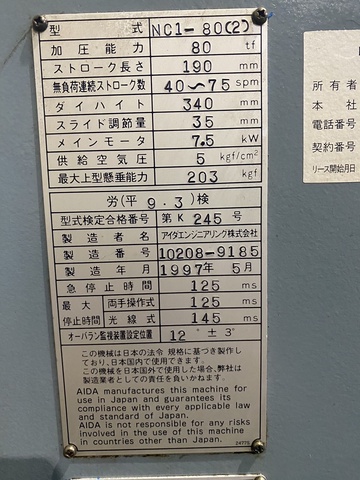 型式 NC1-80(2)
加圧能力 80 tf
ストローク長さ 190 mm
無負荷連続ストローク数 40~75 spm
ダイハイト 340 mm
スライド調節量 35 mm
メインモータ 7.5 kW
供給空気圧 5 kgf/cm²
最大上型懸垂能力 203 kgf
労(平 9.3)検
型式検定合格番号 第K 245号
製造者名 アイダエンジニアリング株式会社
製造番号 10208-9185
製造年月 1997年 5月
急停止時間 125 ms
最大停止時間 両手操作式 125 ms
光線式 145 ms
オーバラン監視装置設定位置 12° ± 3°
この機械は日本の法令 規格に基づき製作し
ており、日本国内で使用できます。
この機械を日本国外で使用した場合、弊社は
製造業者としての責任を負いかねます。
AIDA manufactures this machine for
use in Japan and guarantees its
compliance with every applicable law
and standard of Japan.
AIDA is not responsible for any risks
involved in the use of this machine
in countries other than Japan.
所有者
本社
電話番号
契約番号
リース開始月日